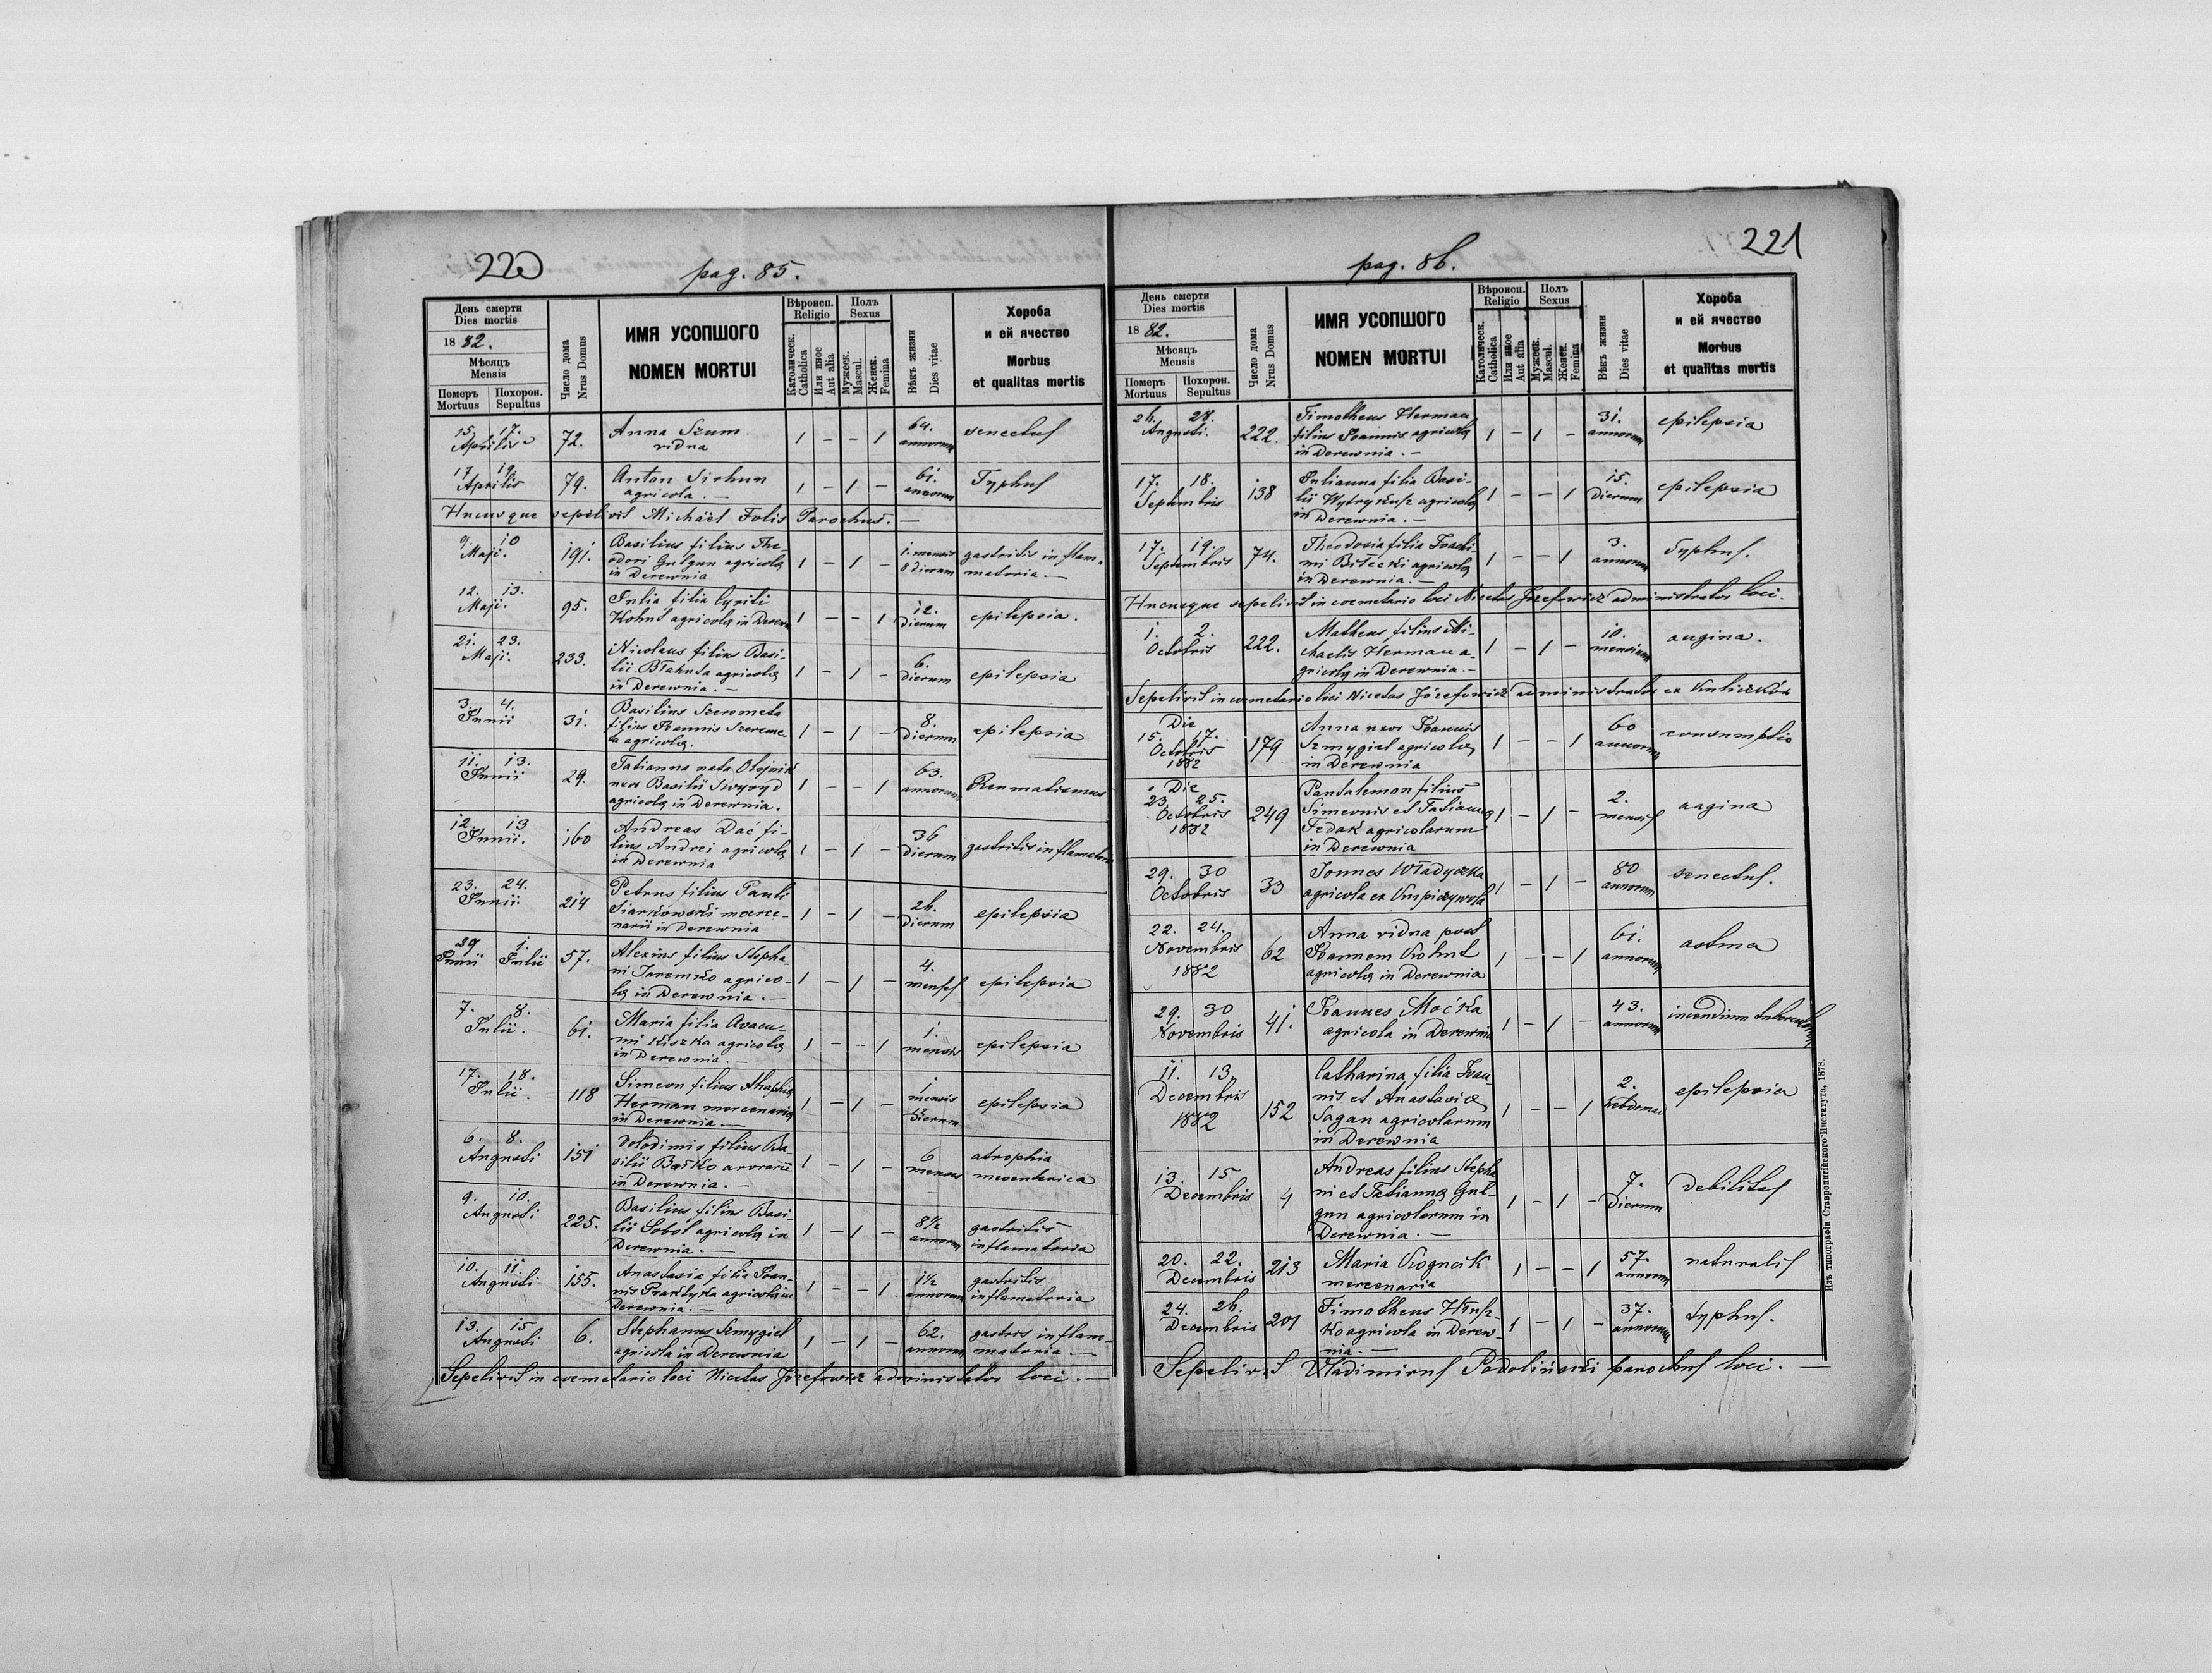 220
pag. 85.
День смерти
Dies mortis
1882.
Мѣсяцъ
Mensis
Померъ Похорон.
Mortuus Sepultus
Число дома
Nrus Domus
ИМЯ УСОПШОГО
NOMEN MORTUI
Вѣроисп.
Religio
Католическ.
Catholica
Или иное
Aut alia
Полъ
Sexus
Мужеск.
Mascul.
Женск.
Femina
Вѣкъ жизни
Dies vitae
Хороба
и ей ячество
Morbus
et qualitas mortis
15. 17. Aprilis 72. Anna Szum 1 – – 1 64. annorum senectus
vidua
17 19. Aprilis 79. Anton Sirhun 1 – 1 – 61. annorum Typhus
agricola. –
Hucusque sepelivit Michaël Folis Parochus. –
9. 10 Maji. 191. Basilius filius The- 1 – 1 – 1. mensis 8 dierum gastritis inflam-
odori Gulgun agricolę matoria. –
in Derewnia
12. 13. Maji. 95. Julia filia Cyrili 1 – – 1 12. dierum epilepsia.
Kohut agricolę in Derew
21. 23. Maji. 233. Nicolaus filius Basi- 1 – 1 – 6. dierum epilepsia
lii Błahuta agricolę
in Derewnia. –
3. 4. Junii 31. Basilius Szeremeta 1 – 1 – 8. dierum epilepsia
filius Ioannis Szereme-
ta agricolę.
11. 13. Junii 29. Tatianna nata Olijnik 1 – – 1 63. annorum Reumatismus
uxor Basilii Swyryd
agricolę in Derewnia.
12. 13 Junii. 160 Andreas Dać fi- 1 – 1 – 36 dierum gastritis inflamatoria
lius Andrei agricolę
in Derewnia
23. 24. Junii 214 Petrus filius Pauli 1 – 1 – 26. dierum epilepsia
Siarkowski merce-
narii in Derewnia
29 1. Junii Julii 57. Alexius filius Stepha- 1 – 1 – 4. menses epilepsia
ni Jaremko agrico-
lę in Derewnia. –
7. 8. Julii. 61. Maria filia Avacu- 1 – – 1 1. mensis epilepsia
mi Kiszka agricolę
in Derewnia. –
17. 18. Julii. 118 Simeon filius Ahaphię 1 – 1 – 1 mensis dierum epilepsia
Herman mercenarię
in Derewnia. –
6. 8. Augusti 151 Volodimir filius Ba- 1 – 1 – 6 menses atrophia
silii mesenterica
in Derewnia. –
9. 10. Augusti 225. Basilius filius Basi- 1 – 1 – 8½ annorum gastritis
lii Soból agricolę in inflamatoria
Derewnia. –
10. 11. Augusti 155. Anastasia filia Ioan- 1 – – 1 1½ annorum gastritis
nis Praktyka agricolę in inflamatoria
Derewnia. –
13. 15 Augusti 6. Stephanus Szmygiel 1 – 1 – 62. annorum gastris inflam-
agricola in Derewnia matoria. –
Sepelivit in coemetario loci Nicetas Józefowicz administrator loci. –
221
pag. 86.
День смерти
Dies mortis
1882.
Мѣсяцъ
Mensis
Померъ Похорон.
Mortuus Sepultus
Число дома
Nrus Domus
ИМЯ УСОПШОГО
NOMEN MORTUI
Вѣроисп.
Religio
Католическ.
Catholica
Или иное
Aut alia
Полъ
Sexus
Мужеск.
Mascul.
Женск.
Femina
Вѣкъ жизни
Dies vitae
Хороба
и ей ячество
Morbus
et qualitas mortis
26. 28. Augusti. 222. Timotheus Herman 1 – 1 – 31. annorum epilepsia
filius Ioannis agricolę
in Derewnia. –
17. 18. Septembris 138 Julianna filia Basi- 1 – – 1 15. dierum epilepsia
lii Wytrykusz agricolę
in Derewnia. –
17. 19. Septembris 74. Theodosia filia Joachi- 1 – – 1 3. annorum Typhus.
mi Biłecki agricolę
in Derewnia. –
Hucusque sepelivit in coemetario loci Nicetas Józefowicz administrator loci.
1. 2. Octobris 222. Matheus filius Mi- 1 – 1 – 10. mensium angina.
chaelis Herman a-
gricolę in Derewnia. –
Sepelivit in coemetario loci Nicetas Józefowicz administrator ex Kuliczków
Die 15. 17. Octobris 1882 179 Anna uxor Ioannis 1 – – 1 60 annorum consumptio
Szmygiel agricolę
in Derewnia
Die 23. 25. Octobris 1882 249 Pantalemon filius 1 – 1 – 2. mensis angina
Simeonis et Tatiannę
Fedak agricolarum
in Derewnia
29. 30 Octobris 33 Ioannes Władyczka 1 – 1 – 80 annorum senectus.
agricola ex Krupiczywola
22. 24. Novembris 1882 62 Anna vidua post 1 – – 1 61. annorum astma
Ioannem Kohut
agricolę in Derewnia
29. 30 Novembris 41. Ioannes Moćka 1 – 1 – 43. annorum incendium
agricola in Derewnia
11. 13. Decembris 1882 152 Catharina filia Ioan- 1 – – 1 2. hebdomad epilepsia
nis et Anastasiæ
Sagan agricolarum
in Derewnia
13. 15 Decembris 4 Andreas filius Stepha 1 – 1 – 7. dierum debilitas
ni et Tatiannę Gul-
gun agricolarum in
Derewnia. –
20. 22. Decembris 213 Maria Kogucik 1 – – 1 57. annorum naturalis
mercenaria
24. 26. Decembris 201 Timotheus Hłusz- 1 – 1 – 37. annorum typhus.
ko agricola in Derew-
nia. –
Sepelivit Vladimirus Podoliński parochus loci. –
Изъ типографіи Ставропигійского Института, 1878.